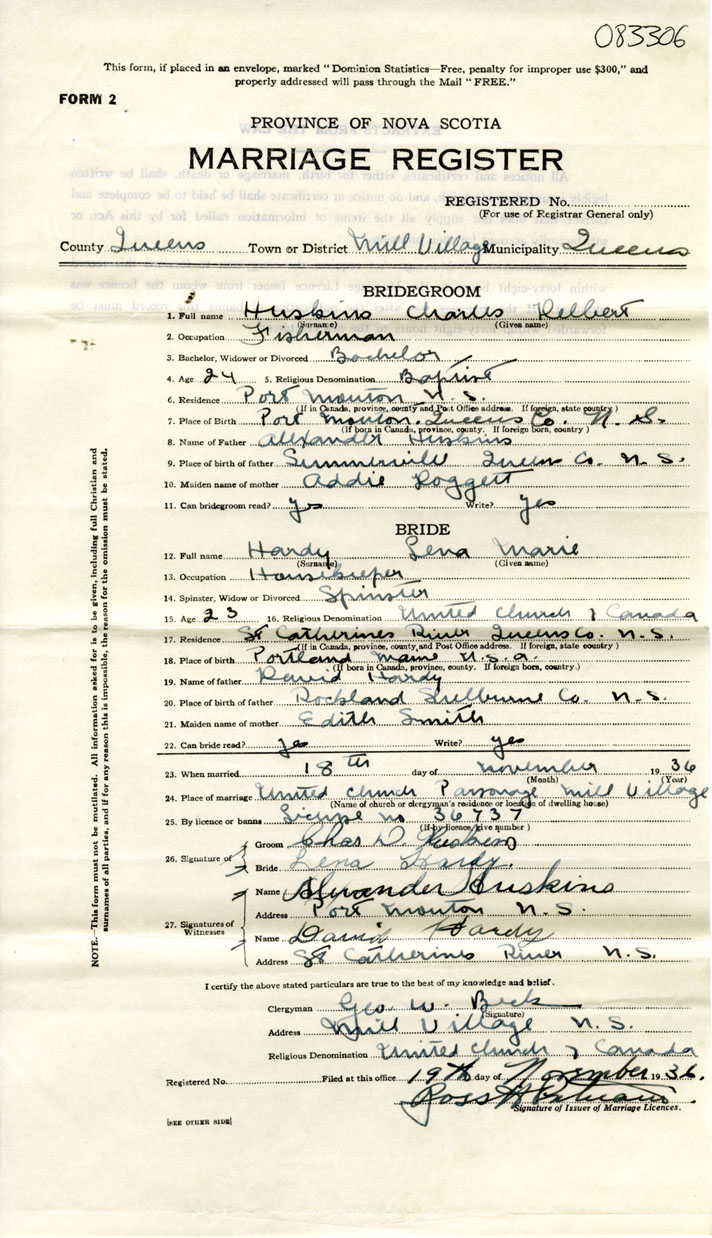 083306
This form, if placed in an envelope, marked "Dominion Statistics—Free, penalty for improper use $300," and
properly addressed will pass through the Mail "FREE."
FORM 2
PROVINCE OF NOVA SCOTIA
MARRIAGE REGISTER
REGISTERED No.
(For use of Registrar General only)
County Queens Town or District Mill Village Municipality Queens
BRIDEGROOM
1. Full name Huskins Charles
(Surname) (Given name)
2. Occupation Fisherman
3. Bachelor, Widower or Divorced Bachelor
4. Age 24 5. Religious Denomination Baptist
6. Residence Port Mouton N. S.
(If in Canada, province, county and Post Office address. If foreign, state country)
7. Place of Birth Port Mouton. Queens Co. N. S.
(If born in Canada, province, county. If foreign born, country)
8. Name of Father Alexander Huskins
9. Place of birth of father Summerville Queens Co. N. S.
10. Maiden name of mother Addie
11. Can bridegroom read? yes Write? yes
BRIDE
12. Full name Hardy Lena Marie
(Surname) (Given name)
13. Occupation Housekeeper
14. Spinster, Widow or Divorced Spinster
15. Age 23 16. Religious Denomination United Church of Canada
17. Residence St Catherines River Queens Co. N. S.
(If in Canada, province, county, and Post Office address. If foreign, state country)
18. Place of birth Portland Maine U. S. a.
(If born in Canada, province, county. If foreign born, country.)
19. Name of father David Hardy
20. Place of birth of father Rockland Shelburne Co. N. S.
21. Maiden name of mother Edith Smith
22. Can bride read? yes Write? yes
23. When married 18th day of November 1936
(Month) (Year)
24. Place of marriage United Church Parsonage Mill Village
(Name of church or clergyman's residence or location of dwelling house)
25. By licence or banns License no 36737
(If by licence give number)
26. Signature of
Groom Chas D. Huskins
Bride Lena Hardy.
27. Signatures of Witnesses
Name Alexander Huskins
Address Port Mouton N. S.
Name David Hardy
Address St Catherines River N. S.
I certify the above stated particulars are true to the best of my knowledge and belief.
Clergyman Geo. W. Beck
(Signature)
Address Mill Village N. S.
Religious Denomination United Church of Canada
Registered No. Filed at this office 19th day of November 1936.
Ross H
Signature of Issuer of Marriage Licences.
[SEE OTHER SIDE]
NOTE.—This form must not be mutilated. All information asked for is to be given, including full Christian and
surnames of all parties, and if for any reason this is impossible, the reason for the omission must be stated.